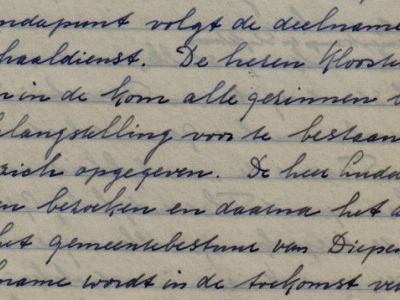 ndapunt volgt de deelname
haaldienst. De heren Klooste
n in de kom alle gezinnen
elangstelling voor te bestaan
zich opgegeven. De heer
en bezoeken en daarna het
het gemeentebestuur van Diepen
name wordt in de toekomst ver